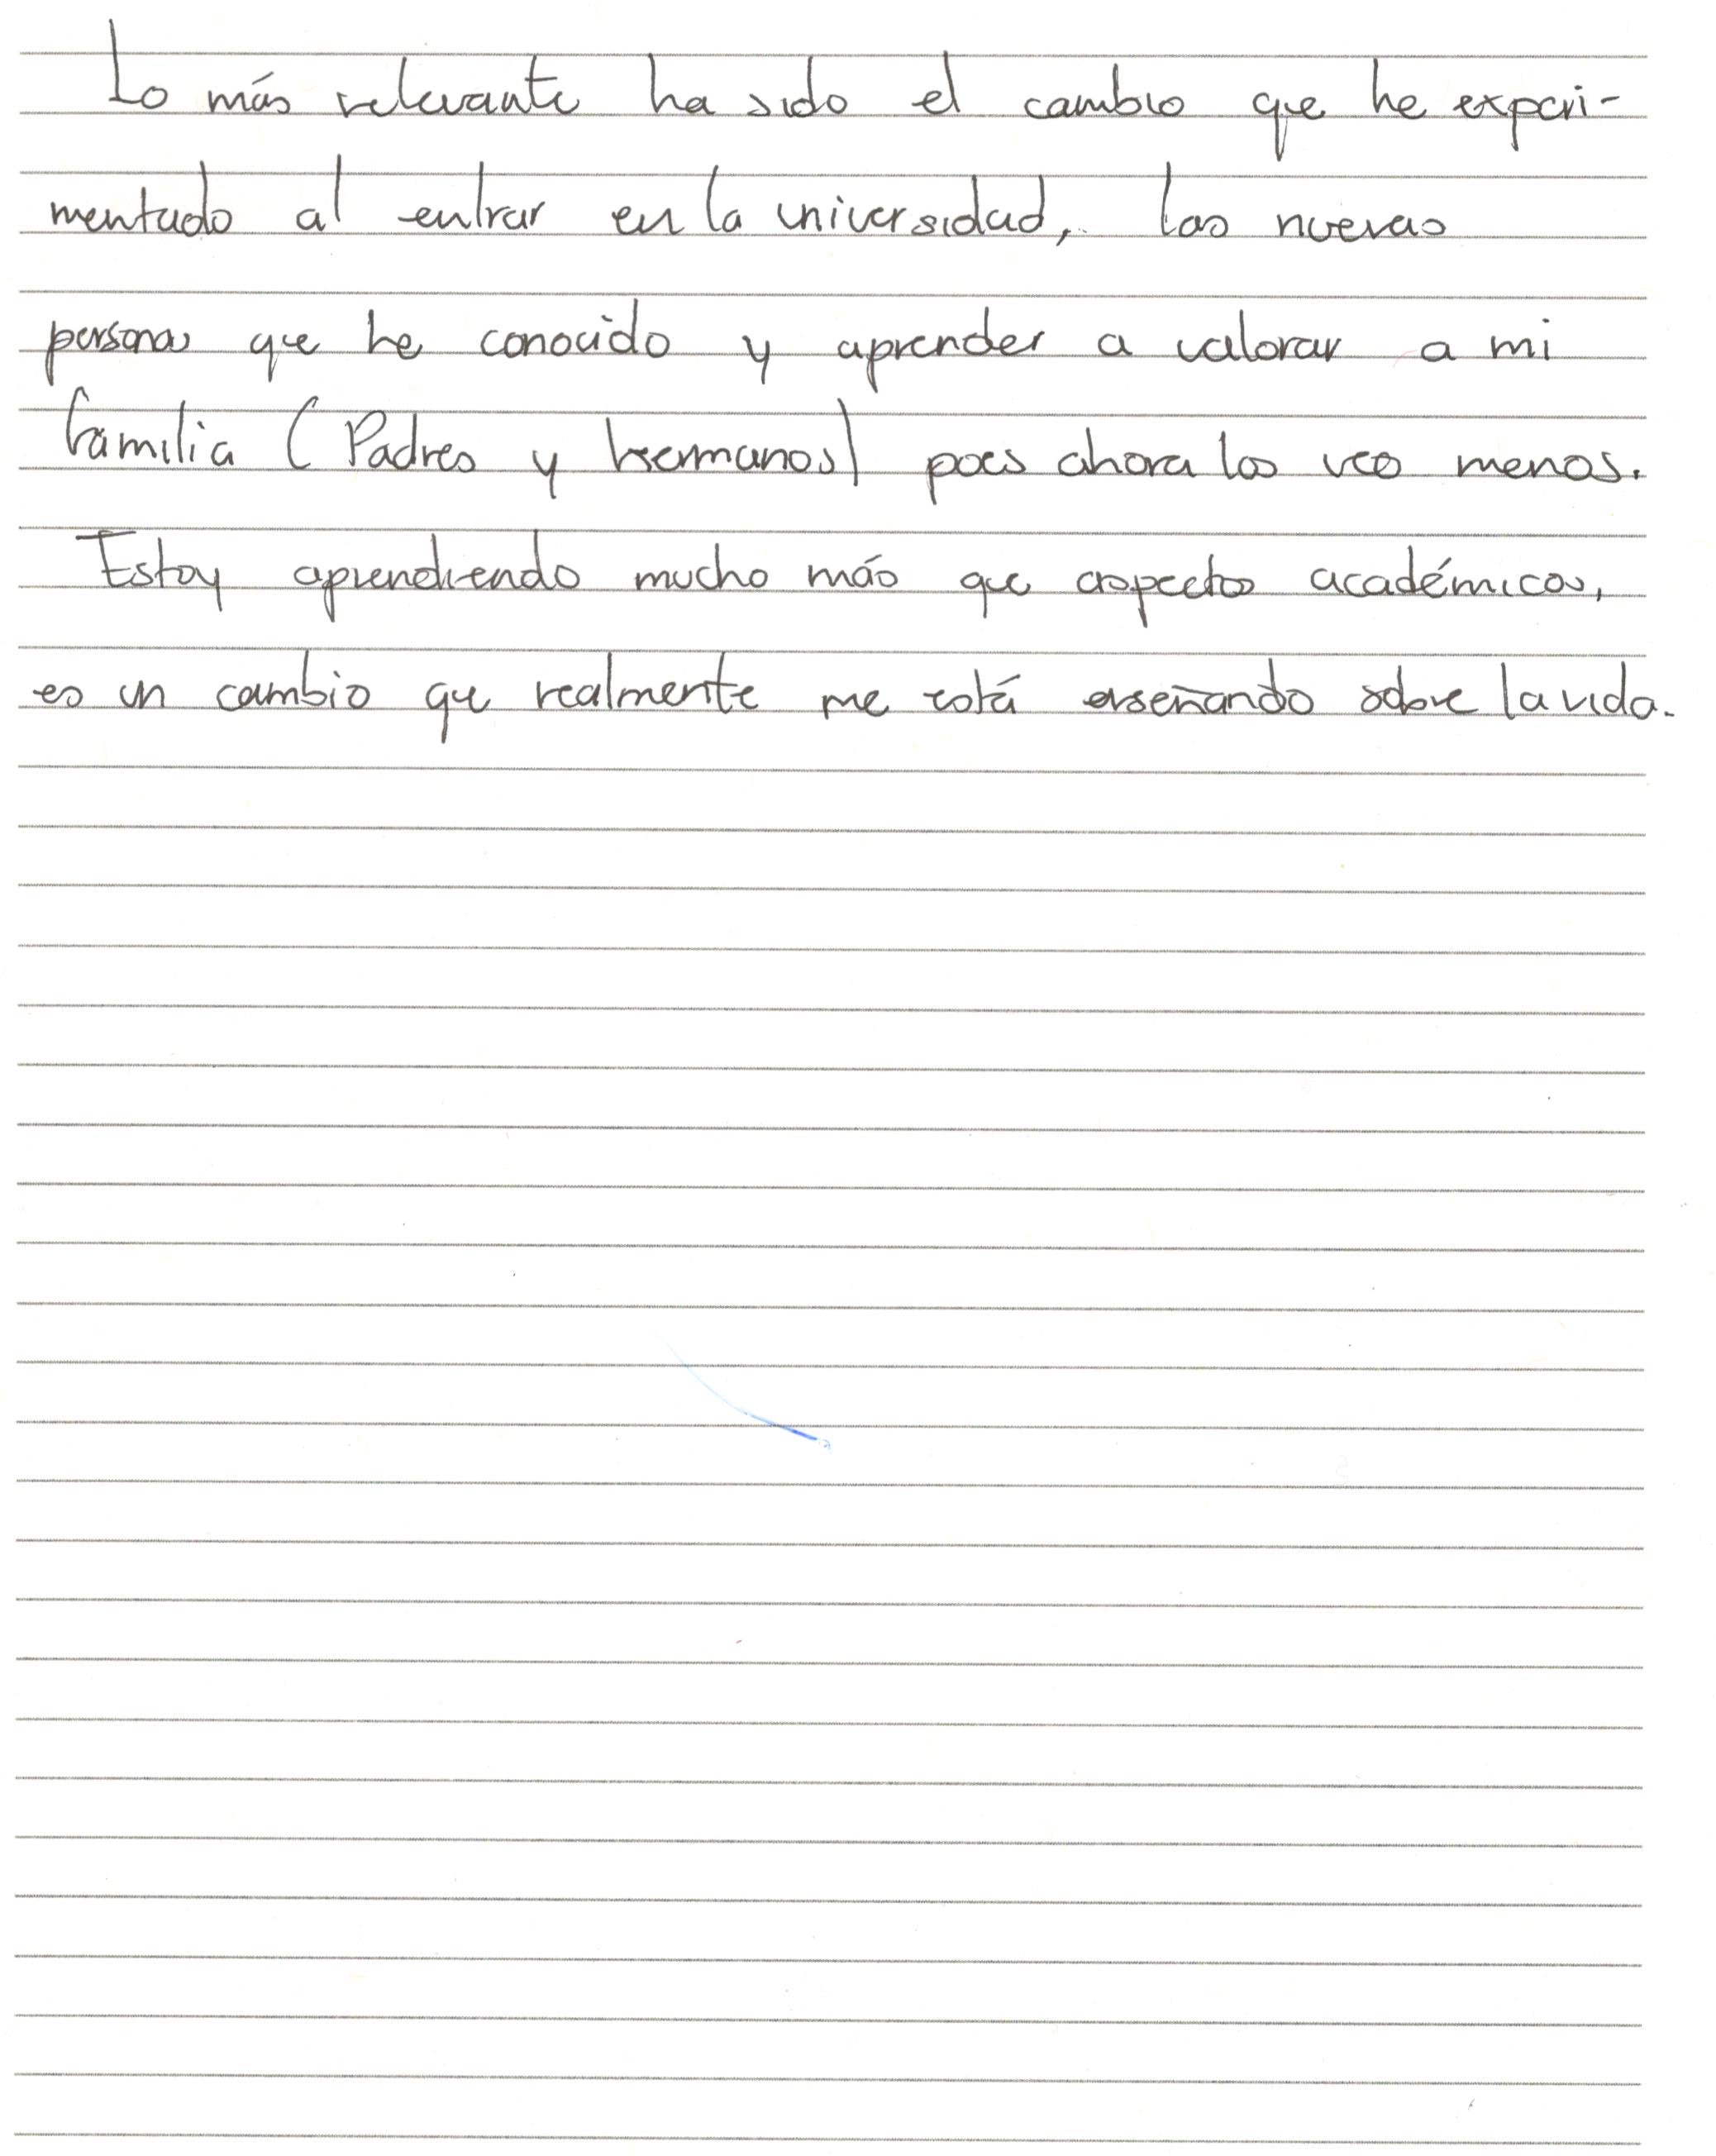 Lo más relevante ha sido el cambio que he experi-
mentado al entrar en la universidad, las nuevas
personas que he conocido y aprender a valorar a mi
familia (Padres y hermanos) pues ahora los veo menos.
Estoy aprendiendo mucho más que aspectos académicos,
es un cambio que realmente me está enseñando sobre la vida.